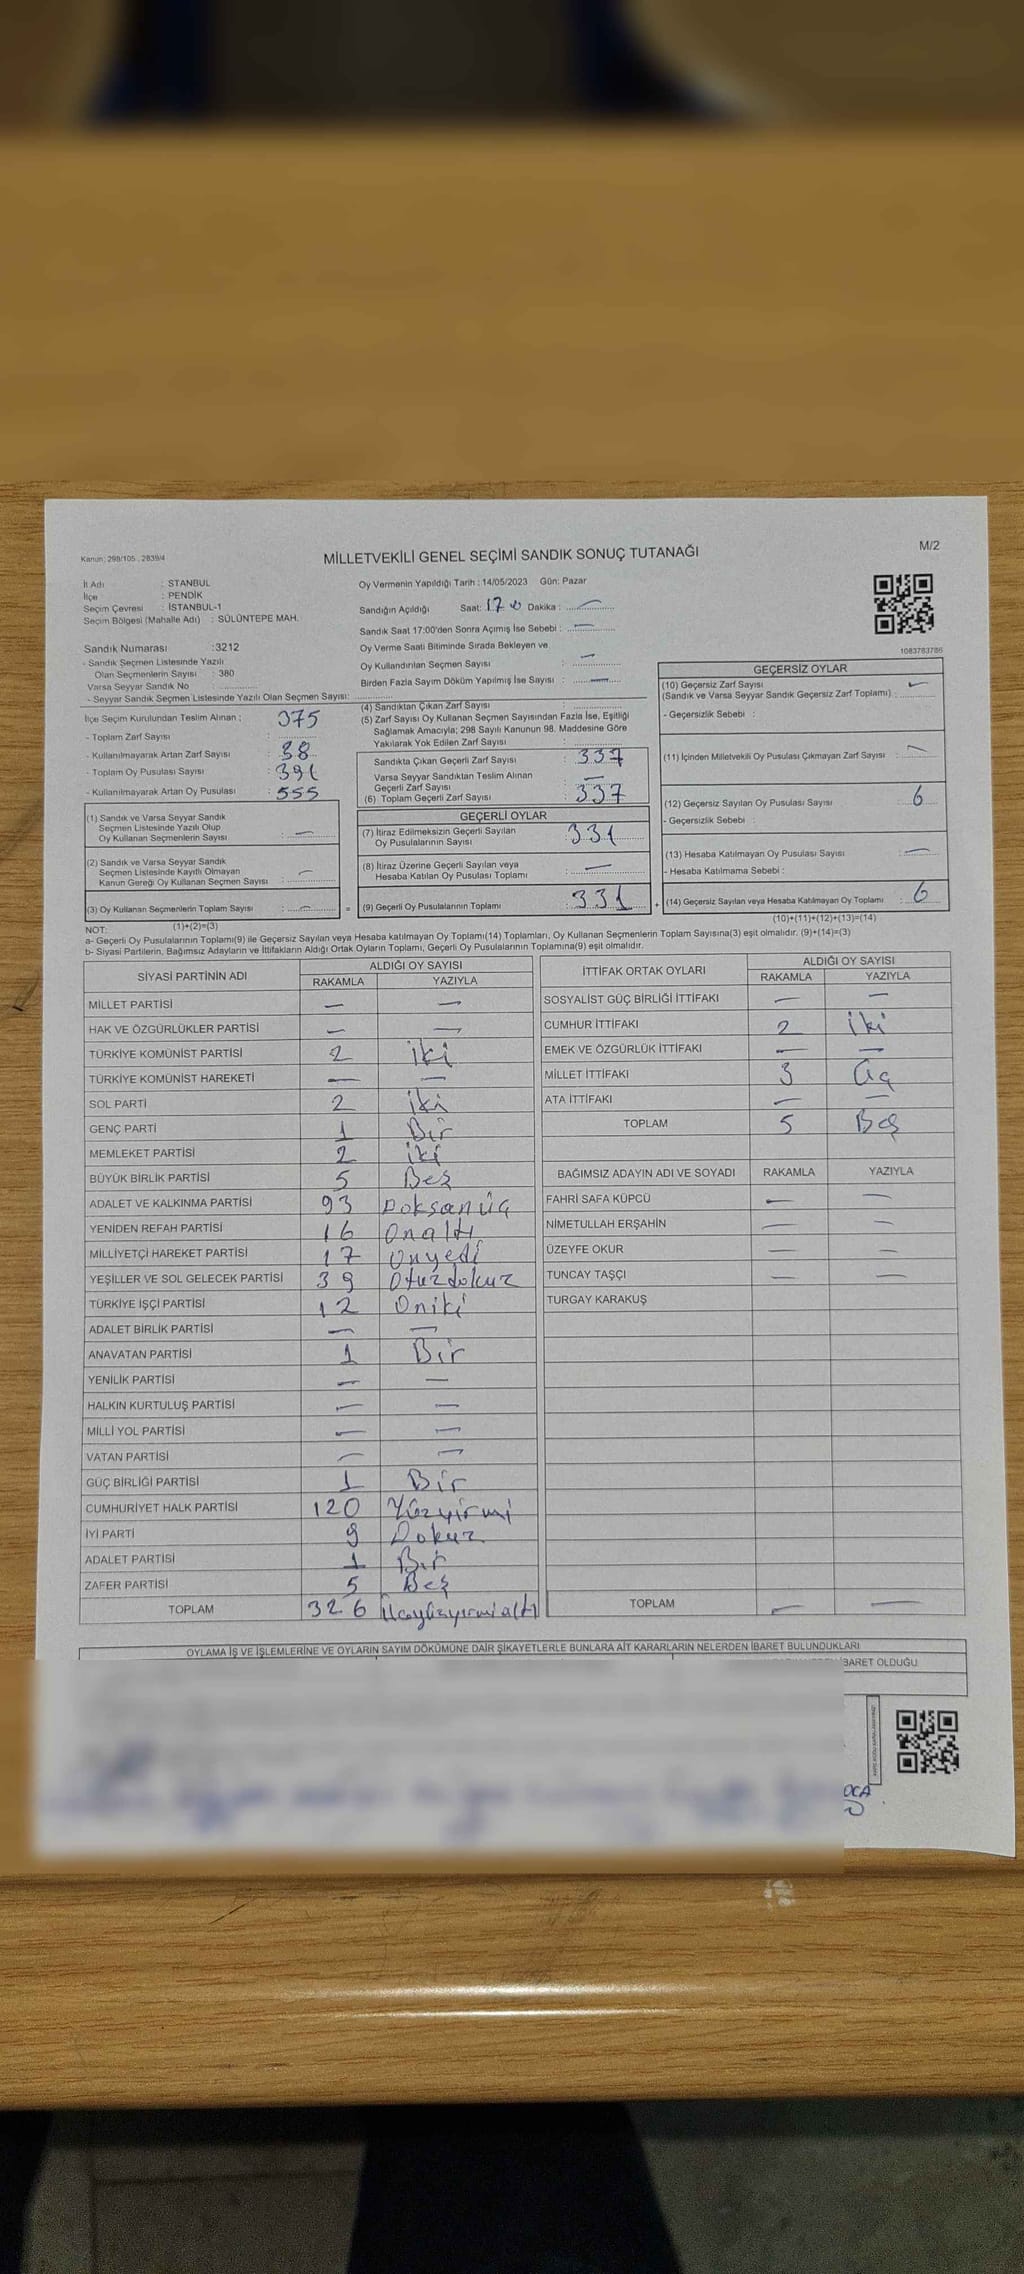 Kanun: 298/105 , 2839/4
MİLLETVEKİLİ GENEL SEÇİMİ SANDIK SONUÇ TUTANAĞI
M/2
İl Adı : STANBUL
İlçe : PENDİK
Seçim Çevresi : İSTANBUL-1
Seçim Bölgesi (Mahalle Adı) : SÜLÜNTEPE MAH.
Oy Vermenin Yapıldığı Tarih : 14/05/2023 Gün: Pazar
Sandığın Açıldığı Saat: 17 Dakika :
Sandık Saat 17:00'den Sonra Açımış İse Sebebi : —
Oy Verme Saati Bitiminde Sırada Bekleyen ve
Oy Kullandırılan Seçmen Sayısı : —
Birden Fazla Sayım Döküm Yapılmış İse Sayısı : —
1083783786
Sandık Numarası :3212
- Sandık Seçmen Listesinde Yazılı
Olan Seçmenlerin Sayısı : 380
Varsa Seyyar Sandık No :
- Seyyar Sandık Seçmen Listesinde Yazılı Olan Seçmen Sayısı:
İlçe Seçim Kurulundan Teslim Alınan : 375
- Toplam Zarf Sayısı :
- Kullanılmayarak Artan Zarf Sayısı : 38
- Toplam Oy Pusulası Sayısı : 391
- Kullanılmayarak Artan Oy Pusulası : 555
(1) Sandık ve Varsa Seyyar Sandık
Seçmen Listesinde Yazılı Olup
Oy Kullanan Seçmenlerin Sayısı : —
(2) Sandık ve Varsa Seyyar Sandık
Seçmen Listesinde Kayıtlı Olmayan
Kanun Gereği Oy Kullanan Seçmen Sayısı : —
(3) Oy Kullanan Seçmenlerin Toplam Sayısı : —
(1)+(2)=(3)
(4) Sandıktan Çıkan Zarf Sayısı :
(5) Zarf Sayısı Oy Kullanan Seçmen Sayısından Fazla İse, Eşitliği
Sağlamak Amacıyla; 298 Sayılı Kanunun 98. Maddesine Göre
Yakılarak Yok Edilen Zarf Sayısı :
Sandıkta Çıkan Geçerli Zarf Sayısı : 337
Varsa Seyyar Sandıktan Teslim Alınan
Geçerli Zarf Sayısı : —
(6) Toplam Geçerli Zarf Sayısı : 337
GEÇERLİ OYLAR
(7) İtiraz Edilmeksizin Geçerli Sayılan
Oy Pusulalarının Sayısı : 331
(8) İtiraz Üzerine Geçerli Sayılan veya
Hesaba Katılan Oy Pusulası Toplamı : —
(9) Geçerli Oy Pusulalarının Toplamı : 331
GEÇERSİZ OYLAR
(10) Geçersiz Zarf Sayısı —
(Sandık ve Varsa Seyyar Sandık Geçersiz Zarf Toplamı) :
- Geçersizlik Sebebi :
(11) İçinden Milletvekili Oy Pusulası Çıkmayan Zarf Sayısı : —
(12) Geçersiz Sayılan Oy Pusulası Sayısı : 6
- Geçersizlik Sebebi :
(13) Hesaba Katılmayan Oy Pusulası Sayısı : —
- Hesaba Katılmama Sebebi :
(14) Geçersiz Sayılan veya Hesaba Katılmayan Oy Toplamı : 6
(10)+(11)+(12)+(13)=(14)
NOT:
a- Geçerli Oy Pusulalarının Toplamı(9) ile Geçersiz Sayılan veya Hesaba katılmayan Oy Toplamı(14) Toplamları, Oy Kullanan Seçmenlerin Toplam Sayısına(3) eşit olmalıdır. (9)+(14)=(3)
b- Siyasi Partilerin, Bağımsız Adayların ve İttifakların Aldığı Ortak Oyların Toplamı, Geçerli Oy Pusulalarının Toplamına(9) eşit olmalıdır.
SİYASİ PARTİNİN ADI ALDIĞI OY SAYISI
RAKAMLA YAZIYLA
MİLLET PARTİSİ — —
HAK VE ÖZGÜRLÜKLER PARTİSİ — —
TÜRKİYE KOMÜNİST PARTİSİ 2 iki
TÜRKİYE KOMÜNİST HAREKETİ — —
SOL PARTİ 2 iki
GENÇ PARTİ 1 Bir
MEMLEKET PARTİSİ 2 iki
BÜYÜK BİRLİK PARTİSİ 5 Beş
ADALET VE KALKINMA PARTİSİ 93 Doksanüç
YENİDEN REFAH PARTİSİ 16 Onaltı
MİLLİYETÇİ HAREKET PARTİSİ 17 Onyedi
YEŞİLLER VE SOL GELECEK PARTİSİ 39 Otuzdokuz
TÜRKİYE İŞÇİ PARTİSİ 12 Oniki
ADALET BİRLİK PARTİSİ — —
ANAVATAN PARTİSİ 1 Bir
YENİLİK PARTİSİ — —
HALKIN KURTULUŞ PARTİSİ — —
MİLLİ YOL PARTİSİ — —
VATAN PARTİSİ — —
GÜÇ BİRLİĞİ PARTİSİ 1 Bir
CUMHURİYET HALK PARTİSİ 120 Yüzyirmi
İYİ PARTİ 9 Dokuz
ADALET PARTİSİ 1 Bir
ZAFER PARTİSİ 5 Beş
TOPLAM 326 Üçyüzyirmialtı
İTTİFAK ORTAK OYLARI ALDIĞI OY SAYISI
RAKAMLA YAZIYLA
SOSYALİST GÜÇ BİRLİĞİ İTTİFAKI — —
CUMHUR İTTİFAKI 2 iki
EMEK VE ÖZGÜRLÜK İTTİFAKI — —
MİLLET İTTİFAKI 3 Üç
ATA İTTİFAKI — —
TOPLAM 5 Beş
BAĞIMSIZ ADAYIN ADI VE SOYADI RAKAMLA YAZIYLA
FAHRİ SAFA KÜPCÜ — —
NİMETULLAH ERŞAHİN — —
ÜZEYFE OKUR — —
TUNCAY TAŞÇI — —
TURGAY KARAKUŞ
TOPLAM — —
OYLAMA İŞ VE İŞLEMLERİNE VE OYLARIN SAYIM DÖKÜMÜNE DAİR ŞİKAYETLERLE BUNLARA AİT KARARLARIN NELERDEN İBARET BULUNDUKLARI
İBARET OLDUĞU
OCA